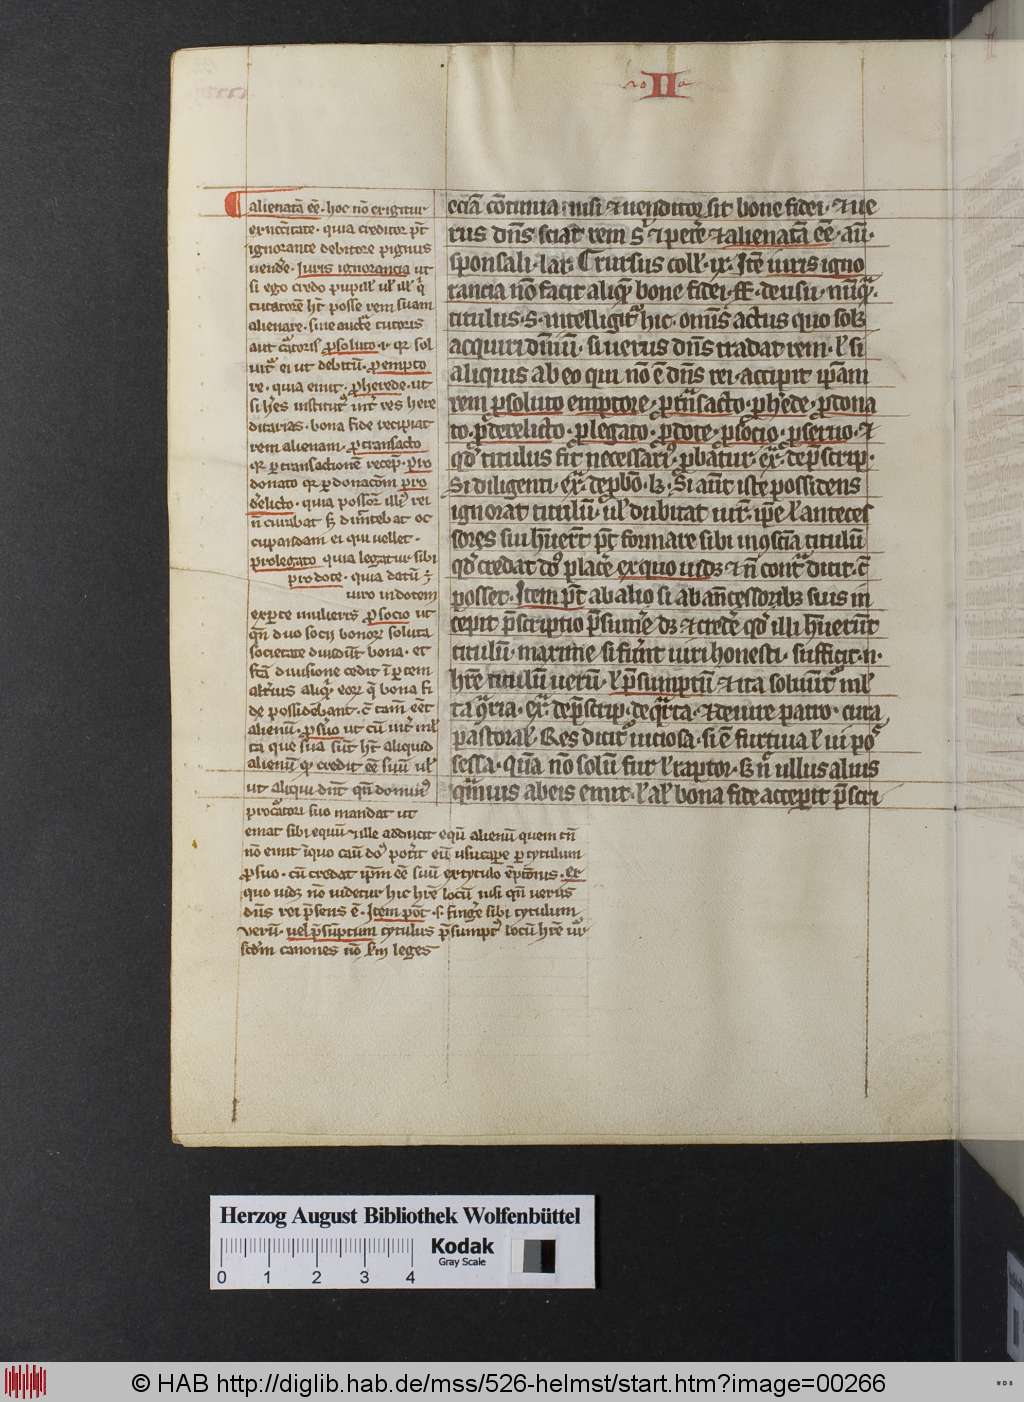 II
alienatā eē · hoc nō exigitur
ex nc̄citate · quia creditor pt̄
ignorante debitore pignus
vende͛ · Iuris ignorancia ut
si ego credo pupill' ul' ill' q̇
tutorē hr̄t posse rem suam
alienare · sine auct͛e tutoris
aut cu͛atoris p̱soluto · i · qr sol
uit͛ ei ut debitū · p̱empto
re · quia emit · p̱herede · ut
si h͛es institut͛ int͛ res here
ditarias · bona fide recipiat
rem alienam · p̱transacto
qr p̱ transactionē recep̄ · p̱ro
donato qr p̱ donacōm pro
d͛elicto · quia possor ill' rei
n̄ curabat s; dimittebat oc
cupandam ei qui vellet ·
prolegato quia legatur sibi
pro dote · quia datū ē
viro in dotem
ex p̱te mulieris p̱socio ut
qn̄ duo socij bonor͛ soluta
societate diuidūt bona · et
alienū · p̱suo ut cū int͛ ml'
ta que sua sūt hr̄t aliquid
alienū qr credit eē suū ul'
ut aliqui dn̄t qn̄ domin͛
procu͛atori suo mandat ut
emat sibi equū ⁊ ille adducit equū alienū quem tn̄
nō emit in quo casū do͛ pot͛it eū usucape p̱ tytulum
p̱suo · cū credat ip̄m eē suū ex tytulo ēptōnis · ex
quo uidꝫ nō videtur hic hr̄e locū nisi qn̄ verus
dn̄s rei p̄sens ē · Item pōt · s · fing͛e sibi tytulum
verū · uel p̄sūptum tytulus p̄sumpt͛ locū hr̄e ur͛
scdm canones nō sm leges
ecciā cōtinua nisi ⁊ uenditor sit bone fidei · ⁊ ue
rus dn̄s sciat rem s͛ ⁊ pete͛ ⁊ alienatā eē · aū ·
sponsali · lar · C rursus coll' · ix · Itē iuris igno
rancia nō facit aliq̄ bone fidei · ff · de usu · nūq̄ ·
titulus · s · intelligit͛ hic · omīs actus quo sol;
acquiri dn̄iū · si uerus dn̄s tradat rem · l' si
aliquis ab eo qui nō ē dn̄s rei · accipit ip̄am
rem p̱soluto emptore · p̱ trāsacto · p̱ h͛ede · p̱dona
to · p̱derelicto · p̱legato · p̱dote · p̱socio · p̱seruo · ⁊
qd͛ titulus sit necessari͛ · p̱batur · ex͛ · de p̄scrip ·
Si diligenti · ex͛ · de p̱bō · l; · Si aūt iste possidens
ignorat titulū · ul' dubitat utr͛ · ip̄e l' anteces
sores sui hūert͛ · pt̄ formare sibi in ɔscīa titulū
qd͛ credat do͛ placē͛ ex quo uidꝫ ⁊ n̄ cont͛dicit · c̄
posset · Item pt̄ ab alio si ab an̄cessoribꝫ suis in
cepit p̄scriptio p̄sume͛ dꝫ ⁊ crede͛ qd͛ illi hūerūt
titulū · maxime si fu͛int uiri honesti · sufficit · n ·
hr̄e titulū uerū · l' p̄sumptū ⁊ ita soluūt͛ ml'
ta q͛ria · ex͛ · de p̄scrip · de q͛rta · ⁊ de iure patro · cura
pastoral' · Res dicit͛ uiciosa · si ē furtiua l' ui po͛
sessa · quia nō solū fur l' raptor · s; n͛ ullus alius
q͛muis ab eis emit · l' al' bona fide acceperit p̄scri
Herzog August Bibliothek Wolfenbüttel
Kodak
Gray Scale
0 1 2 3 4
© HAB http://diglib.hab.de/mss/526-helmst/start.htm?image=00266